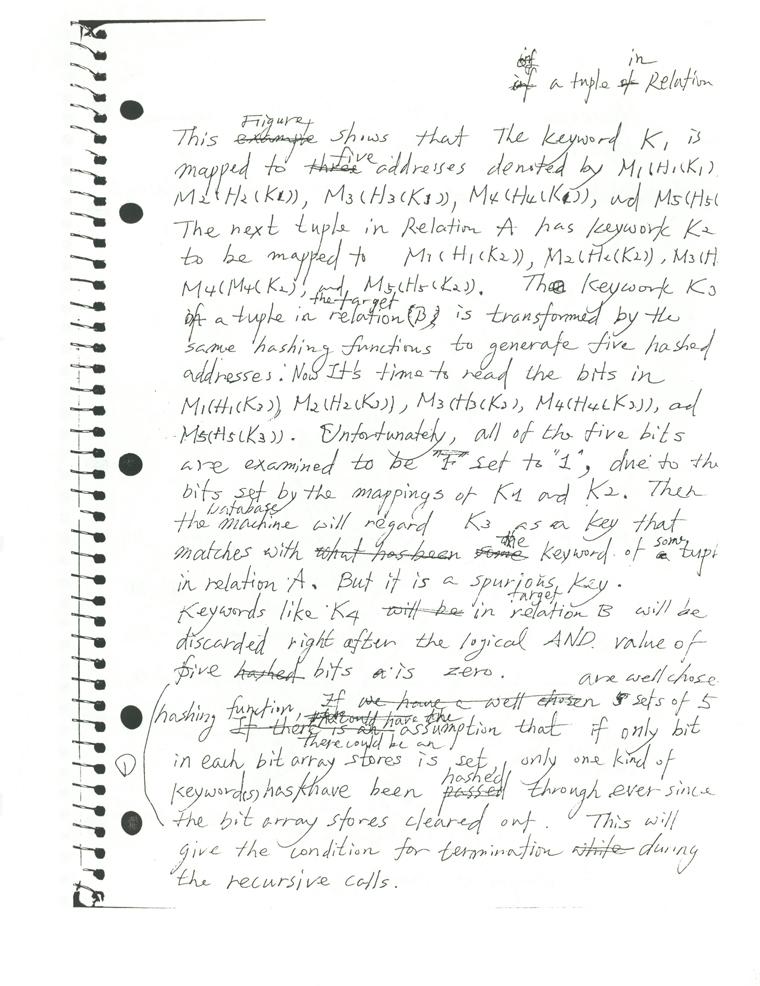 in
a tuple of Relation
Figure
This example shows that The keyword K1 is
mapped to three five addresses denoted by M1(H1(K1)
M2(H2(K1)), M3(H3(K1)), M4(H4(K1)), and M5(H5(
The next tuple in Relation A has keywork K2
to be mapped to M1(H1(K2)), M2(H2(K2)), M3(H
M4(M4(K2), and, M5(H5(K2)). The Keywork K3
the target
of a tuple in relation (B) is transformed by the
same hashing functions to generate five hashed
addresses. Now It's time to read the bits in
M1(H1(K3)), M2(H2(K3)), M3(H3(K3), M4(H4(K3)), ad
M5(H5(K3)). Unfortunately, all of the five bits
are examined to be "F" set to "1", due to the
bits set by the mappings of K1 and K2. Then
Database
the machine will regard K3 as a key that
matches with what has been some the keyword of a some tupl
in relation A. But it is a spurious key.
target
Keywords like K4 will be in relation B will be
discarded right after the logical AND value of
five hashed bits is zero. are well chose
hashing function, If we have a well chosen 5 sets of 5
If there is an assumption that if only bit
There could be an
in each bit array stores is set, only one kind of
hashed
keyword(s) has/have been passed through ever since
the bit array stores cleared out. This will
give the condition for termination while during
the recursive calls.
1